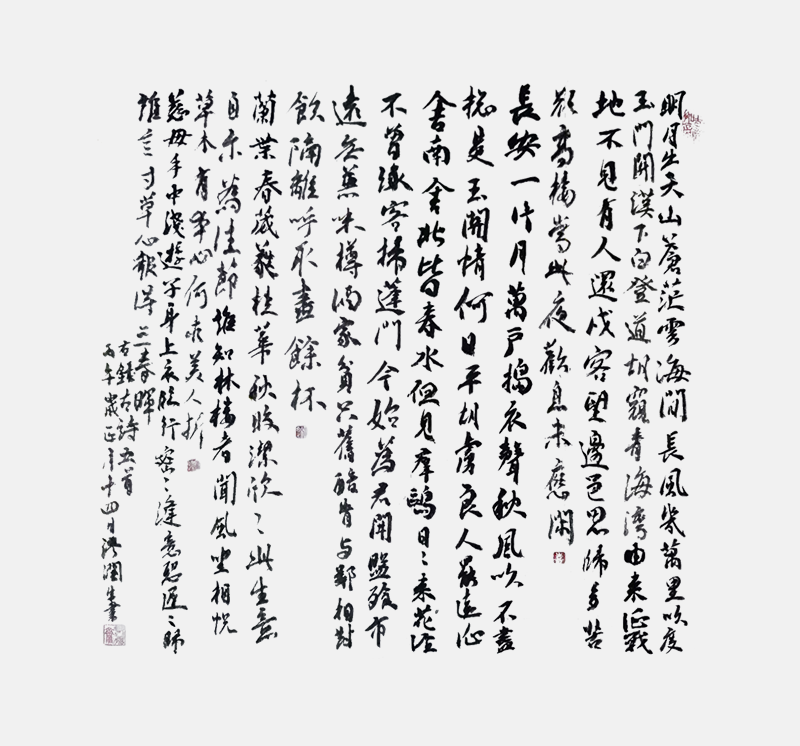 明月出天山蒼茫雲海間長風幾萬里吹度
玉門關漢下白登道胡窺青海灣由來征戰
地不見有人還戍客望邊邑思歸多苦
顏高樓當此夜歎息未應閑
長安一片月萬戶搗衣聲秋風吹不盡
總是玉關情何日平胡虜良人罷遠征
舍南舍北皆春水但見群鷗日日來花徑
不曾緣客掃蓬門今始為君開盤飧市
遠無兼味樽酒家貧只舊醅肯與鄰相對
飲隔籬呼取盡餘杯
蘭葉春葳蕤桂華秋皎潔欣欣此生意
自尔為佳節誰知林棲者聞風坐相悅
草木有本心何求美人折
慈母手中線遊子身上衣臨行密密縫意恐遲遲歸
誰言寸草心報得三春暉
右錄古詩五首
丙午歲正月十四日 潤生書